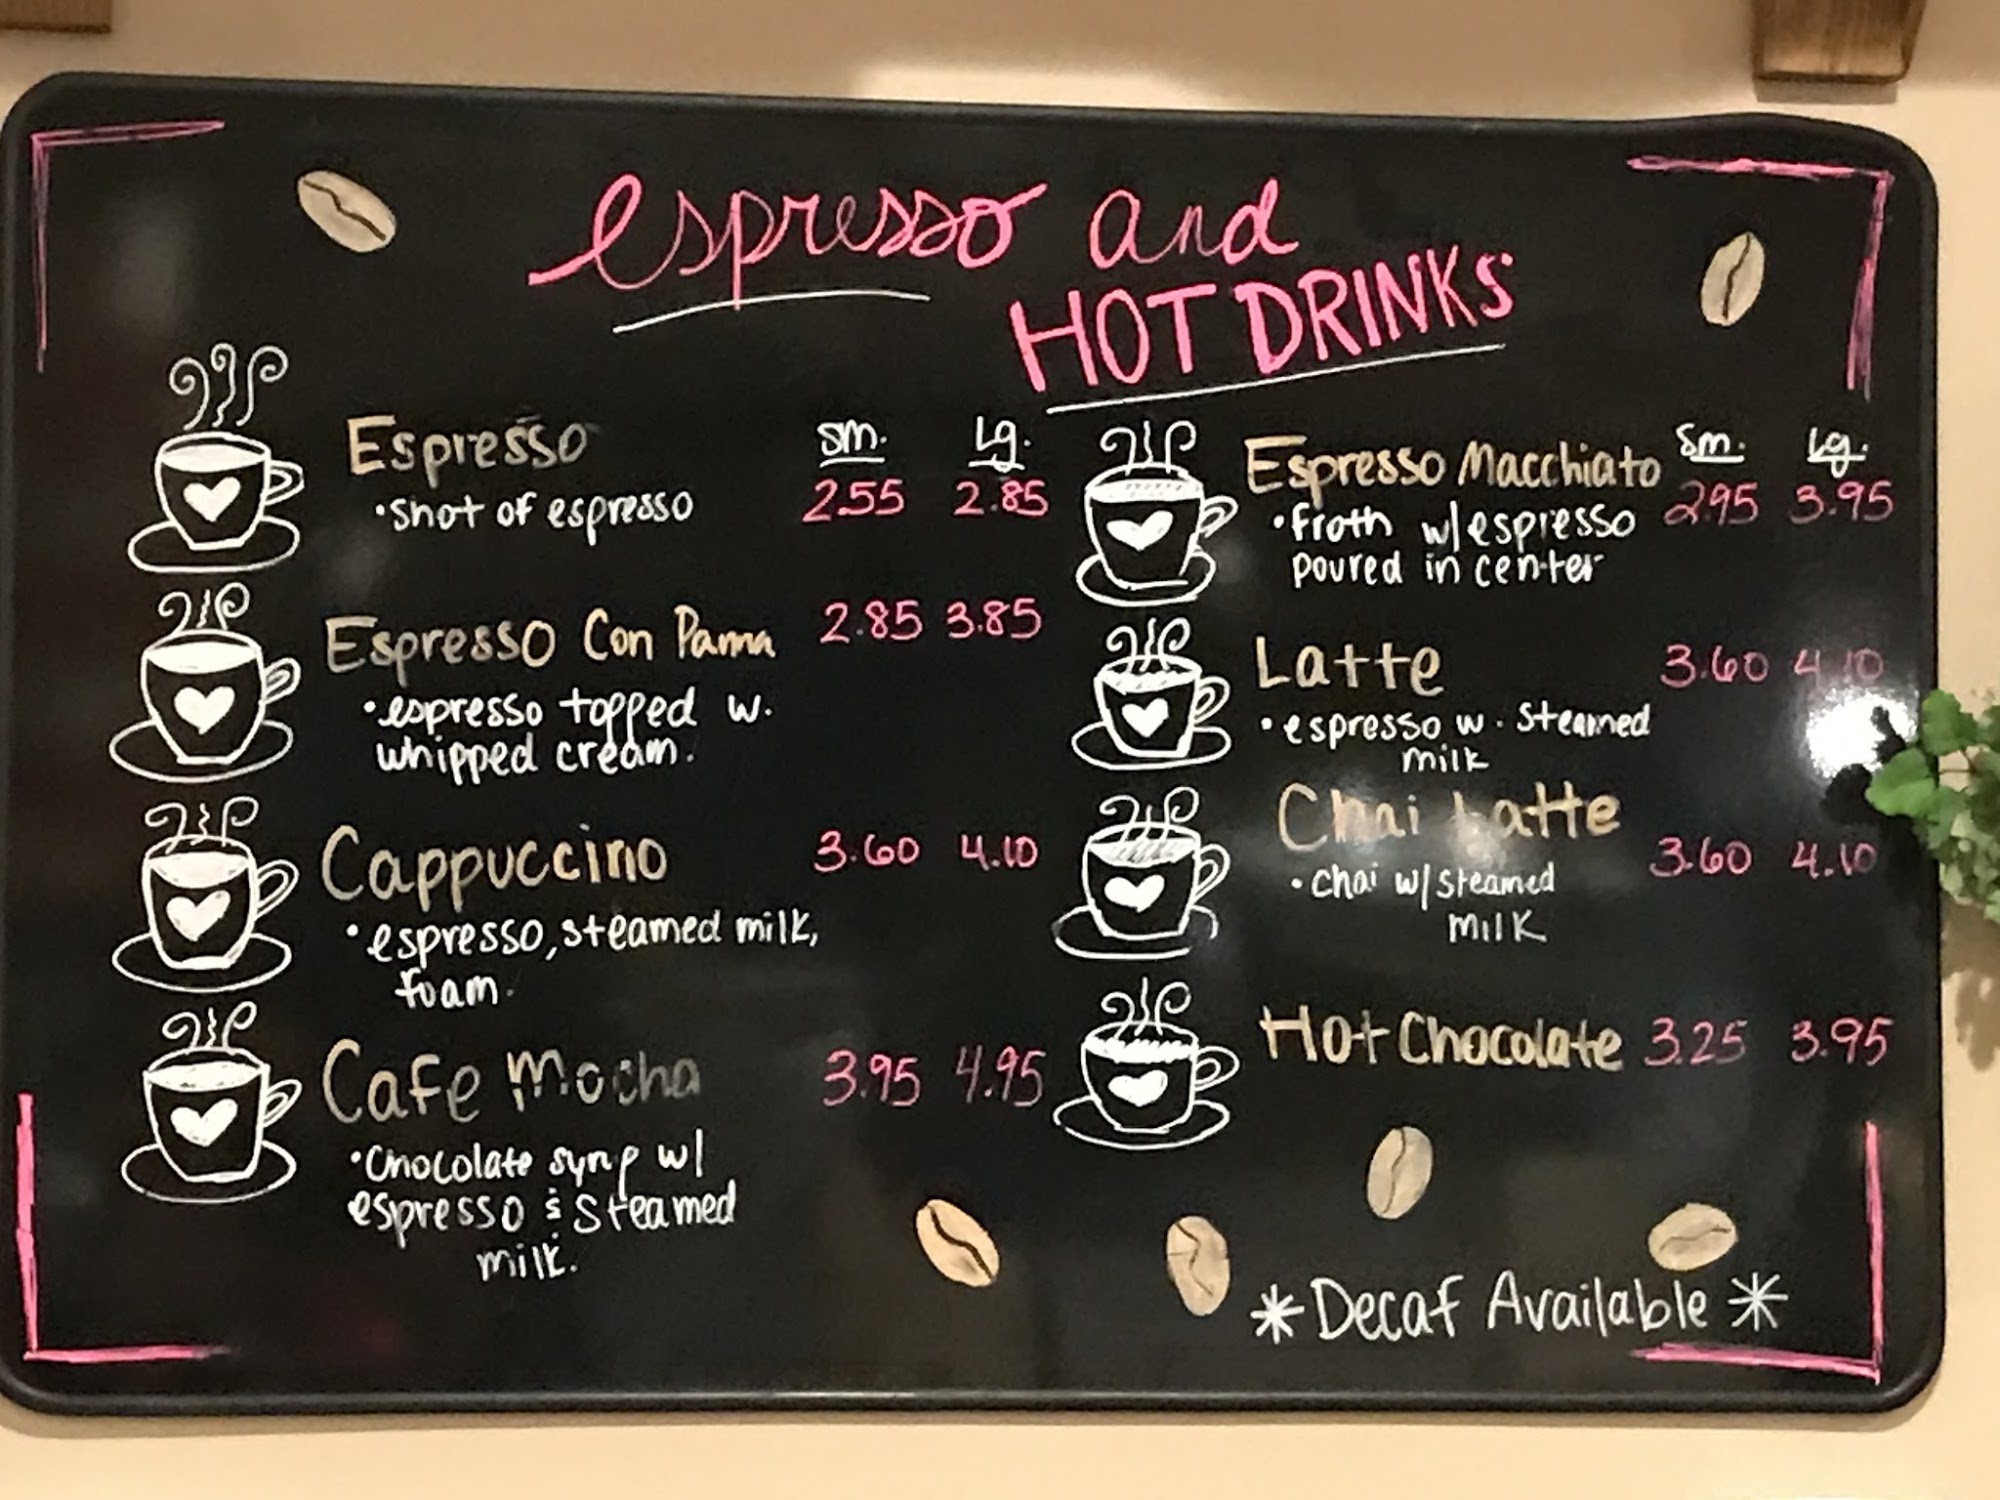 espresso and
HOT DRINKS
Espresso sm. Lg.
•shot of espresso 2.55 2.85
Espresso Con Pama 2.85 3.85
•espresso topped w.
whipped cream.
Cappuccino 3.60 4.10
•espresso, steamed milk,
foam.
Cafe Mocha 3.95 4.95
•Chocolate syrup w/
espresso & Steamed
milk.
Espresso Macchiato Sm. Lg.
•froth w/espresso 2.95 3.95
poured in center
Latte 3.60 4.10
•espresso w. Steamed
milk
Chai Latte
•Chai w/steamed 3.60 4.10
milk
Hot Chocolate 3.25 3.95
*Decaf Available*